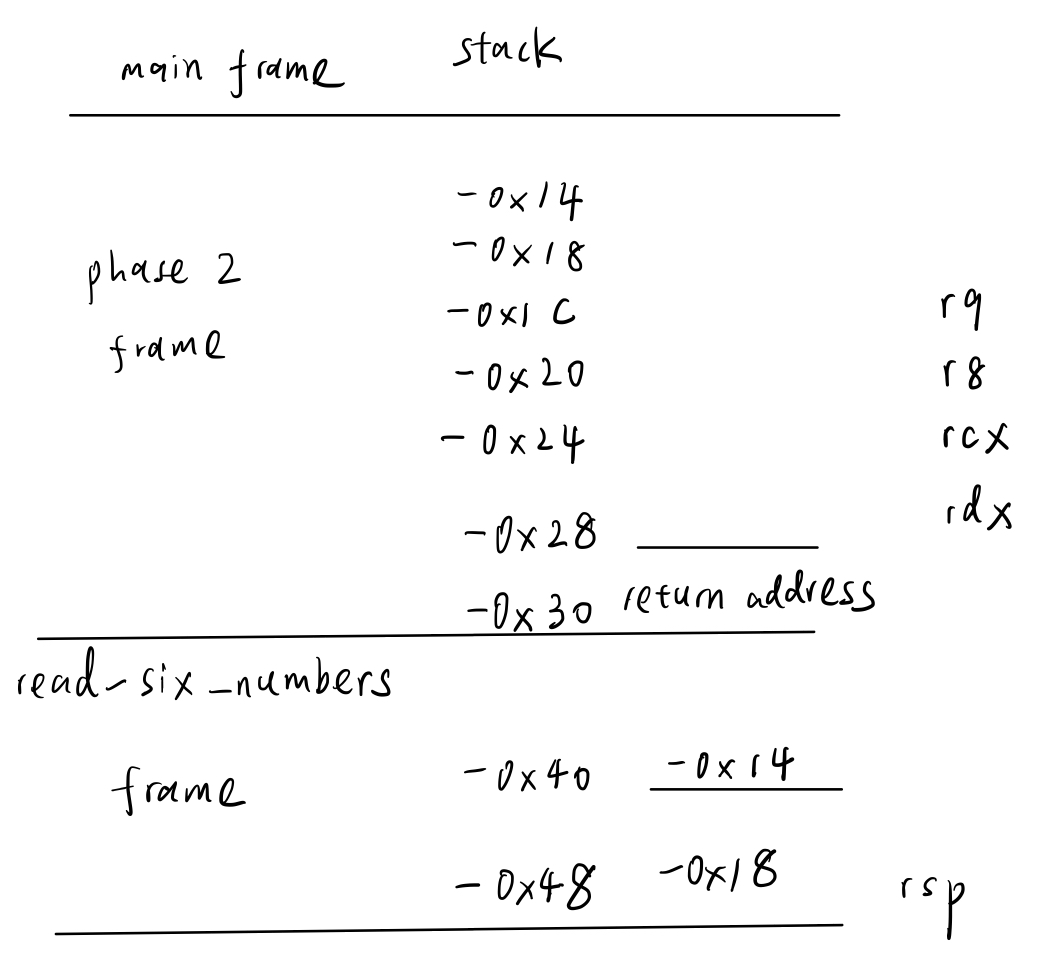 main frame stack
-0x14
-0x18
phase 2
-0x1C r9
frame
-0x20 r8
-0x24 rcx
-0x28 rdx
-0x30 return address
read-six_numbers
frame -0x40 -0x14
-0x48 -0x18 rsp